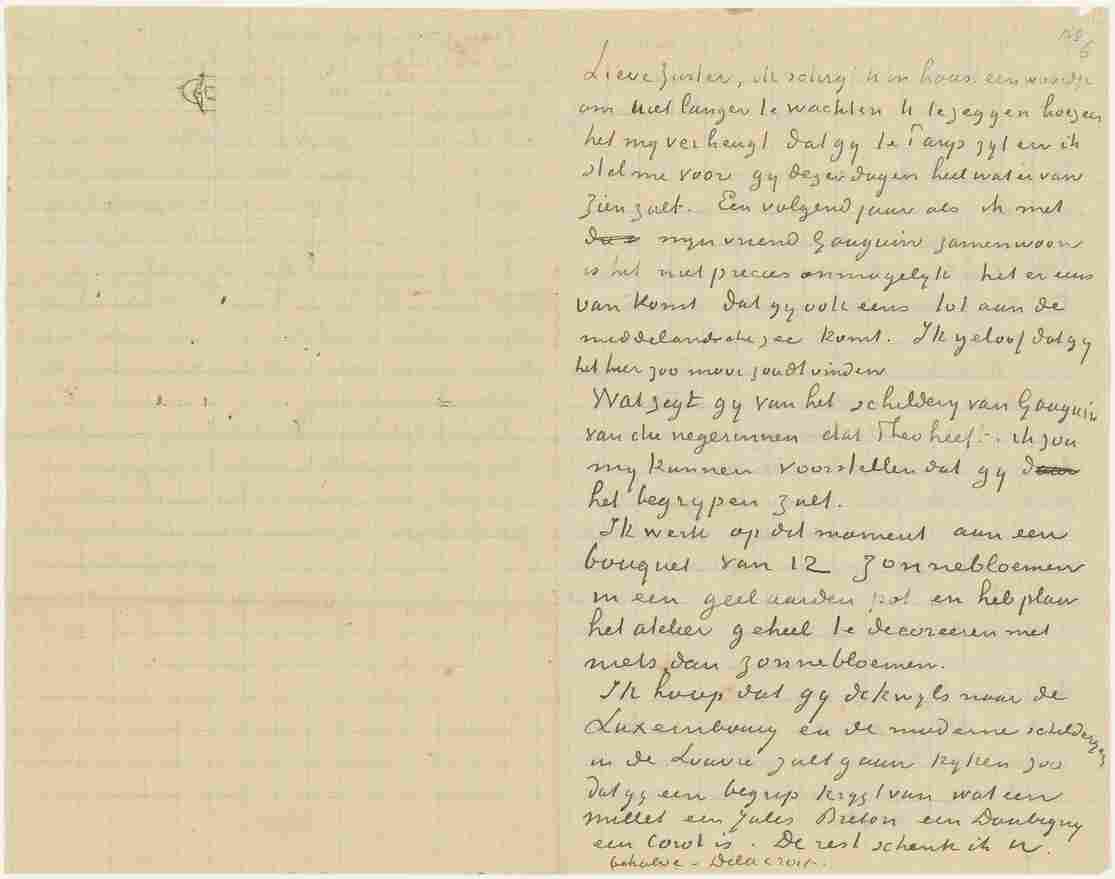 no
6
Lieve zuster, ik schryf U in haast een woordje
om niet langer te wachten U te zeggen hoezeer
het my verheugt dat gy te Parys zyt en ik
stel me voor gy dezer dagen heel wat er van
zien zult. Een volgend jaar als ik met
myn vriend Gauguin zamenwoon
is het niet precies onmogelyk het er eens
van komt dat gy ook eens tot aan de
middelandsche zee komt. Ik geloof dat gy
het hier zoo mooi zoudt vinden
Wat zegt gy van het schildery van Gauguin
van die negerinnen dat Theo heeft. ik zou
my kunnen voorstellen dat gy
het begrypen zult.
Ik werk op dit moment aan een
bouquet van 12 zonnebloemen
in een geel aarden pot en heb plan
het atelier geheel te decoreeren met
niets dan zonnebloemen.
Ik hoop dat gy dikwyls naar de
Luxembourg en de moderne schilderyen
in de Louvre zult gaan kyken zoo
dat gy een begrip krygt van wat een
millet een Jules Breton een Daubigny
een Corot is. De rest schenk ik U.
behalve – Delacroix.